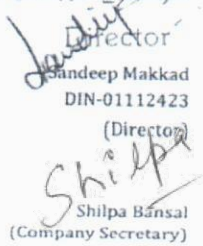 Sandeep
Director
Sandeep Makkad
DIN-01112423
(Director)
Shilpa
Shilpa Bansal
(Company Secretary)